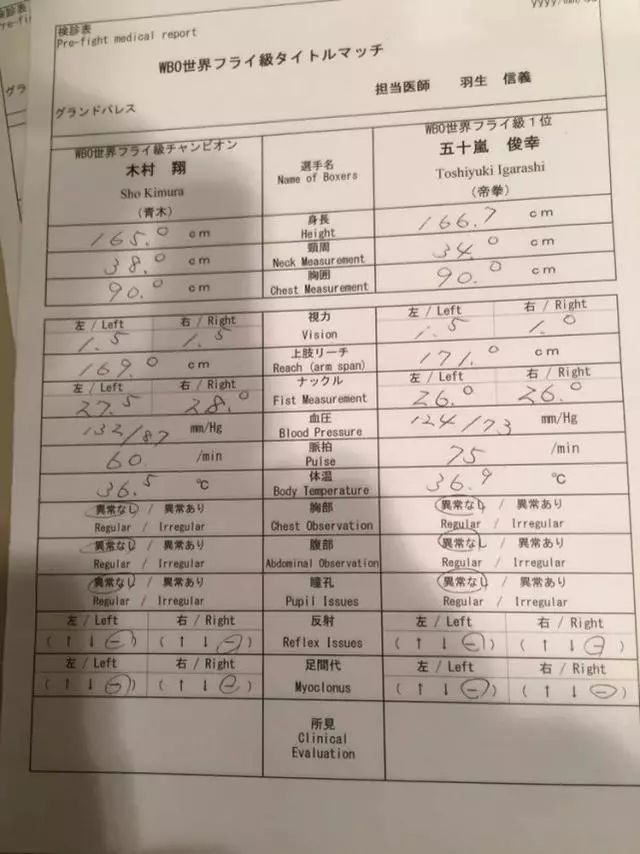 検診表
Pre-fight medical report
WBO世界フライ級タイトルマッチ
担当医師 羽生 信義
グランドパレス
WBO世界フライ級チャンピオン
木村 翔
Sho Kimura
(青木)
選手名
Name of Boxers
WBO世界フライ級1位
五十嵐 俊幸
Toshiyuki Igarashi
(帝拳)
165.0 cm 身長 Height 166.7 cm
38.0 cm 頸周 Neck Measurement 34.0 cm
90.0 cm 胸囲 Chest Measurement 90.0 cm
左 / Left 右 / Right 視力 左 / Left 右 / Right
1.5 1.5 Vision 1.5 1.0
169.0 cm 上肢リーチ Reach (arm span) 171.0 cm
左 / Left 右 / Right ナックル 左 / Left 右 / Right
27.5 28.0 Fist Measurement 26.0 26.0
132/87 mm/Hg 血圧 Blood Pressure 124/73 mm/Hg
60 /min 脈拍 Pulse 75 /min
36.5 ℃ 体温 Body Temperature 36.9 ℃
異常なし / 異常あり 胸部 異常なし / 異常あり
Regular / Irregular Chest Observation Regular / Irregular
異常なし / 異常あり 腹部 異常なし / 異常あり
Regular / Irregular Abdominal Observation Regular / Irregular
異常なし / 異常あり 瞳孔 異常なし / 異常あり
Regular / Irregular Pupil Issues Regular / Irregular
左 / Left 右 / Right 反射 左 / Left 右 / Right
(↑ ↓ −) (↑ ↓ −) Reflex Issues (↑ ↓ −) (↑ ↓ −)
左 / Left 右 / Right 足間代 左 / Left 右 / Right
(↑ ↓ −) (↑ ↓ −) Myoclonus (↑ ↓ −) (↑ ↓ −)
所見
Clinical
Evaluation